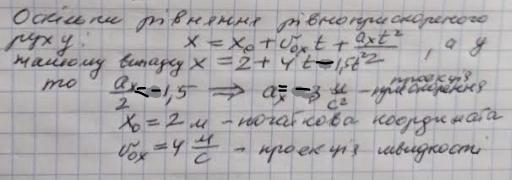 Оскільки рівняння рівноприскореного
руху: x = x₀ + v₀ₓt + aₓt²/2, а у
нашому випадку x = 2 + 4t - 1,5t²
то aₓ/2 = -1,5 ⟹ aₓ = -3 м/с² - проекція прискорення
x₀ = 2 м - початкова координата
v₀ₓ = 4 м/с - проекція швидкості